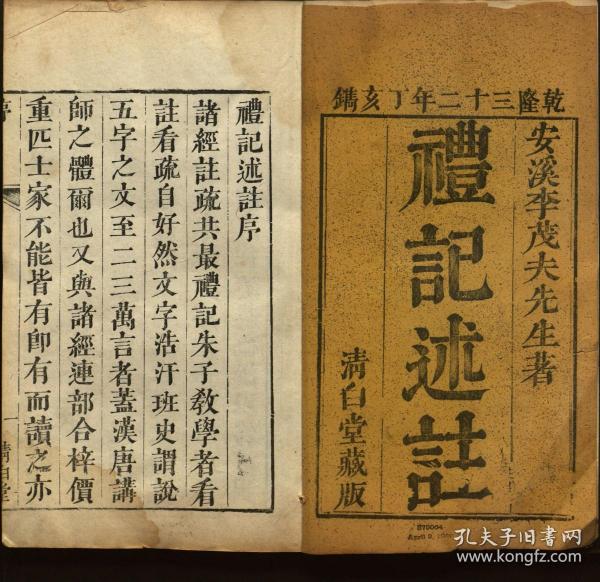 乾隆三十二年丁亥鐫
安溪李茂夫先生著
禮記述註
清白堂藏版
禮記述註序
諸經註疏共最禮記朱子教學者看
註看疏自好然文字浩汗班史謂說
五字之文至二三萬言者蓋漢唐講
師之體爾也又與諸經連部合梓價
重匹士家不能皆有卽有而讀之亦
序
一
清白堂
870004
April 9,
孔夫子旧书网
www.kongfz.com